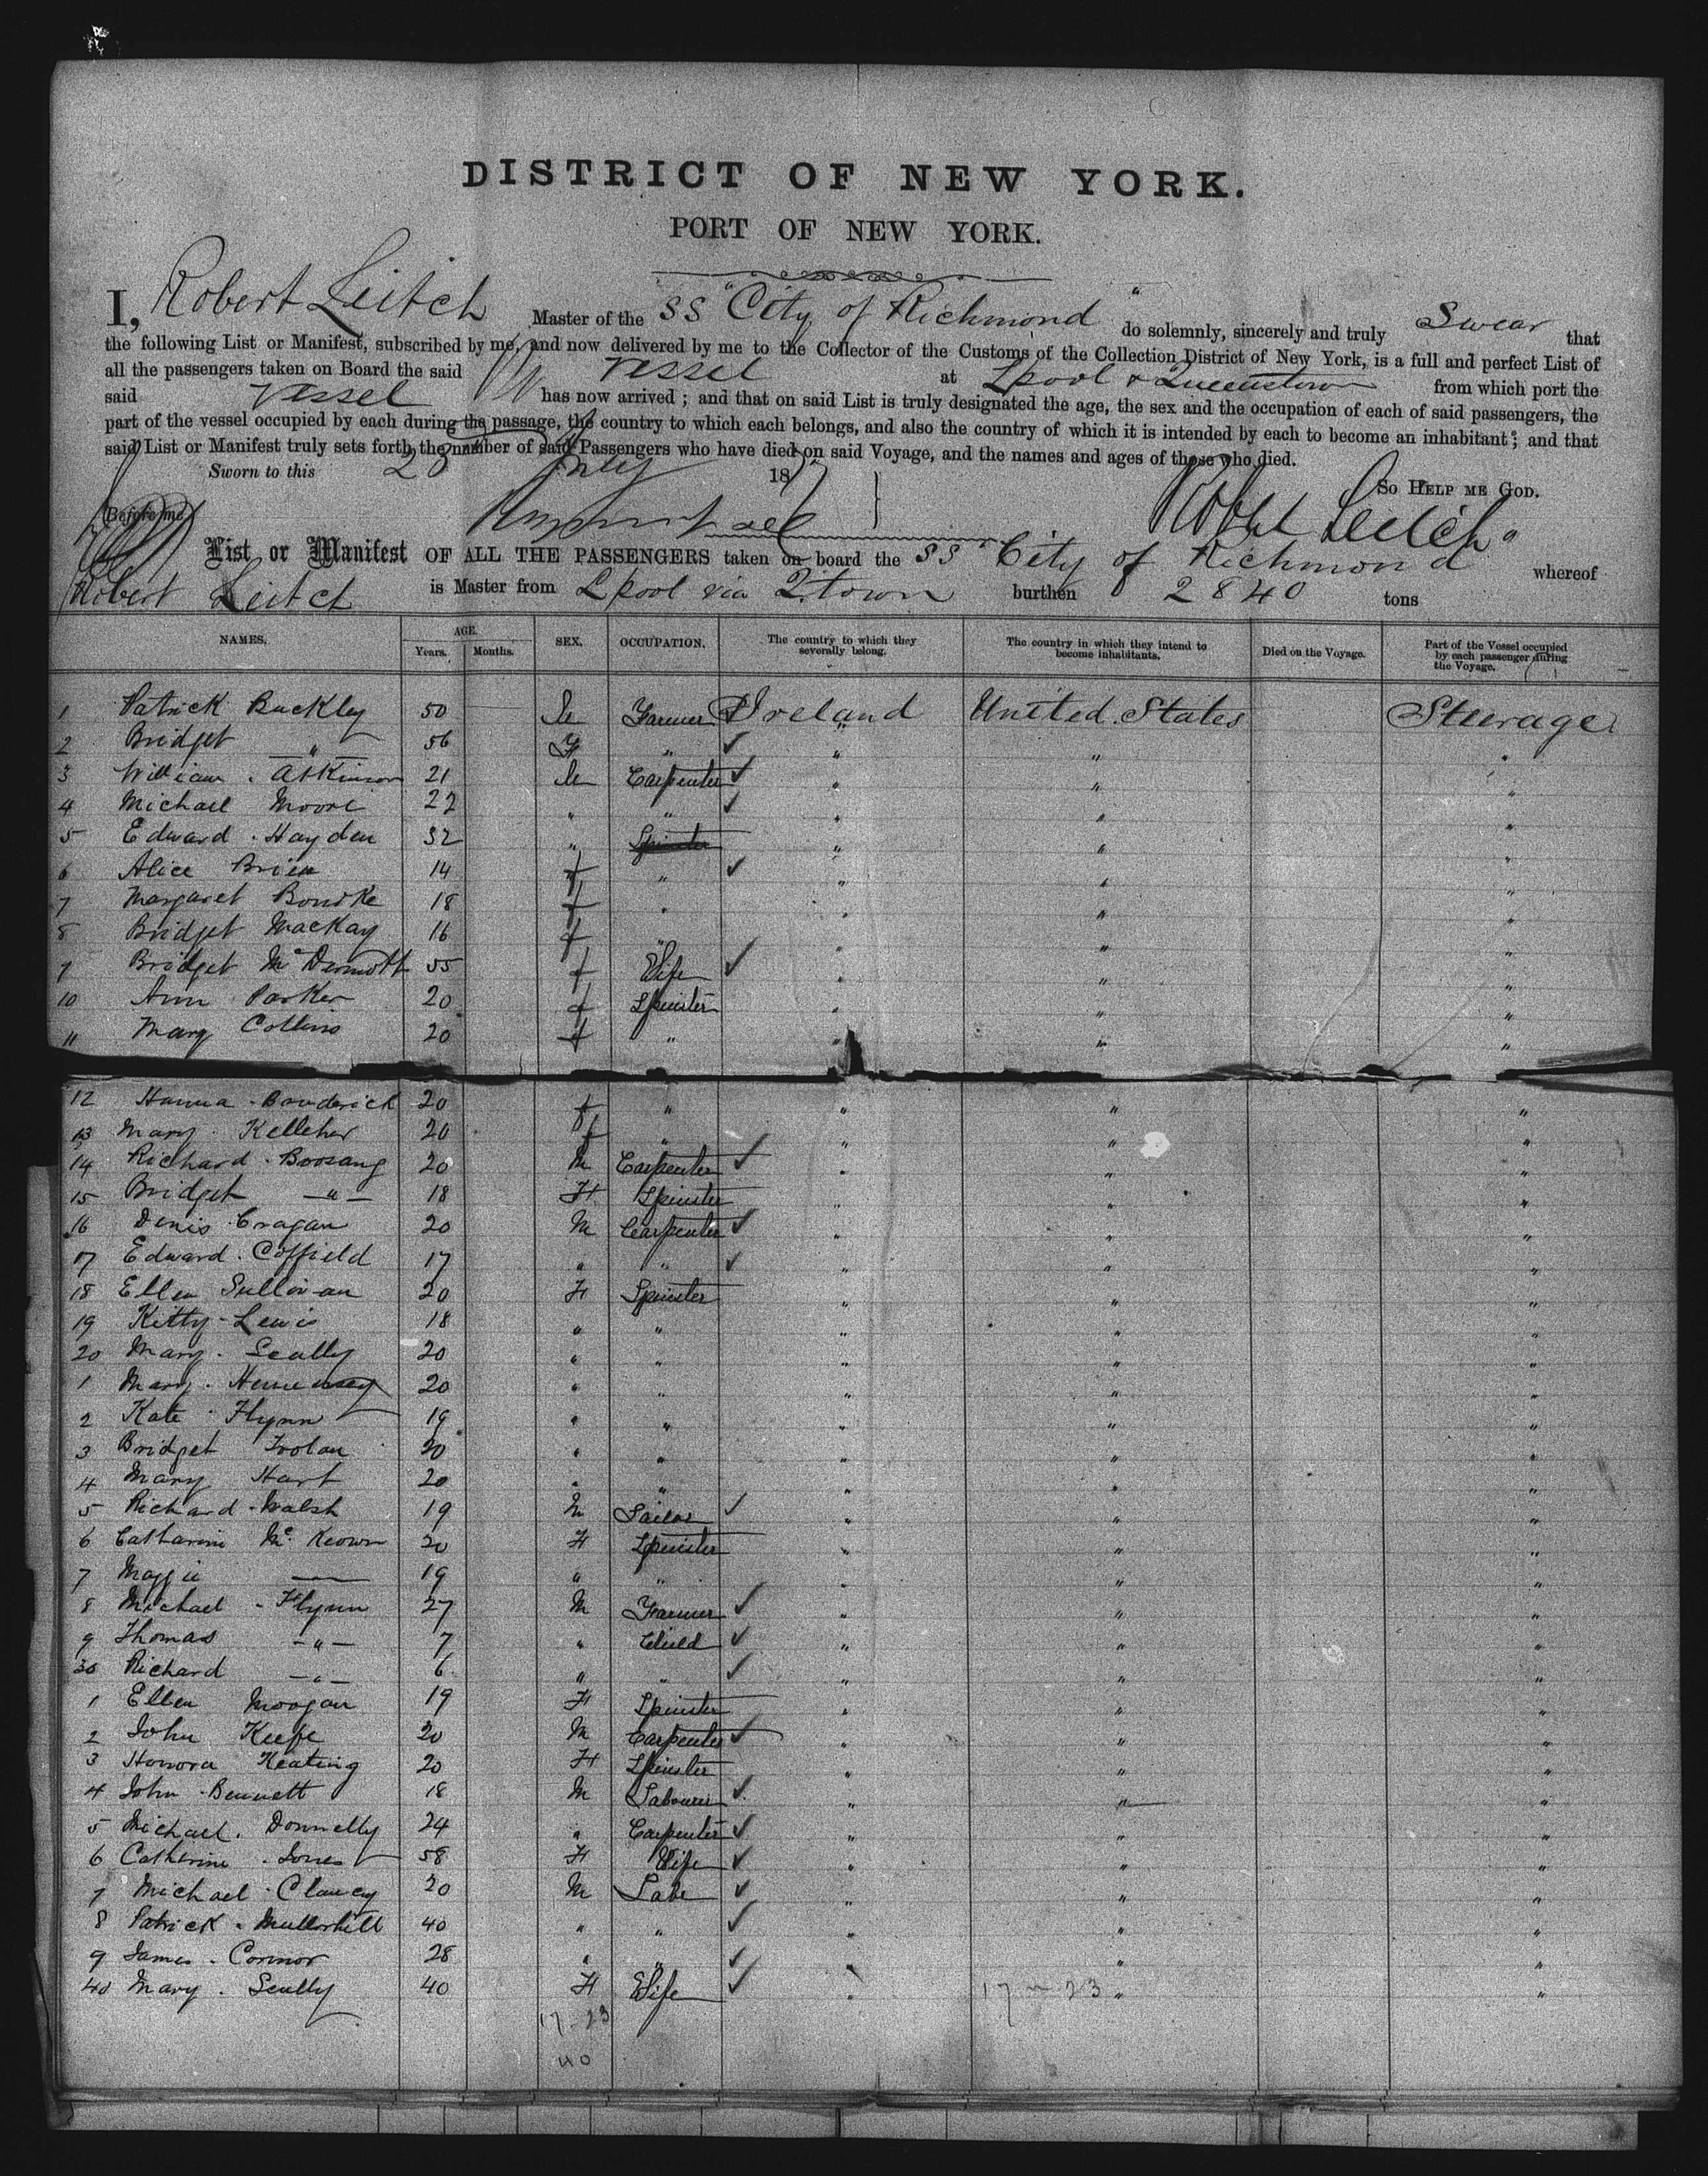 DISTRICT OF NEW YORK.
PORT OF NEW YORK.
I, Robert Leitch Master of the SS "City of Richmond" do solemnly, sincerely and truly Swear that
the following List or Manifest, subscribed by me, and now delivered by me to the Collector of the Customs of the Collection District of New York, is a full and perfect List of
all the passengers taken on Board the said Vessel at Lpool & Queenstown from which port the
said Vessel has now arrived ; and that on said List is truly designated the age, the sex and the occupation of each of said passengers, the
part of the vessel occupied by each during the passage, the country to which each belongs, and also the country of which it is intended by each to become an inhabitant ; and that
said List or Manifest truly sets forth the number of said Passengers who have died on said Voyage, and the names and ages of those who died.
Sworn to this 23 July 187
So Help me God.
Before me
Robt Leitch
List or Manifest OF ALL THE PASSENGERS taken on board the SS "City of Richmond" whereof
Robert Leitch is Master from Lpool via Qtown burthen 2840 tons
NAMES. AGE. Years. Months. SEX. OCCUPATION. The country to which they severally belong. The country in which they intend to become inhabitants. Died on the Voyage. Part of the Vessel occupied by each passenger during the Voyage.
1 Patrick Buckley 50 M Farmer Ireland United States Steerage
2 Bridget " 56 F " ✓ " " "
3 William Atkinson 21 M Carpenter ✓ " " "
4 Michael Moore 22 " " ✓ " " "
5 Edward Hayden 32 " Spinster " " "
6 Alice Brien 14 f " ✓ " " "
7 Margaret Bourke 18 f " " " "
8 Bridget Mackay 16 f " " " "
9 Bridget McDermott 55 f Wife ✓ " " "
10 Ann Parker 20 f Spinster " " "
11 Mary Collins 20 f " " " "
12 Hanna Broderick 20 f " " " "
13 Mary Kelleher 20 f " " " "
14 Richard 20 M Carpenter ✓ " " "
15 Bridget " 18 F Spinster " " "
16 Denis Cragan 20 M Carpenter ✓ " " "
17 Edward Coffield 17 " " ✓ " " "
18 Ellen Sullivan 20 F Spinster " " "
19 Kitty Lewis 18 " " " " "
20 Mary Scully 20 " " " " "
1 Mary Hennessey 20 " " " " "
2 Kate Flynn 19 " " " " "
3 Bridget 20 " " " " "
4 Mary Hart 20 " " " " "
5 Richard Walsh 19 M Tailor ✓ " " "
6 Catharine McKeown 20 F Spinster " " "
7 Maggie — 19 " " " " "
8 Michael Flynn 27 M Farmer ✓ " " "
9 Thomas " 7 " Child ✓ " " "
30 Richard " 6 " " ✓ " " "
1 Ellen Morgan 19 F Spinster " " "
2 John Keefe 20 M Carpenter ✓ " " "
3 Honora Keating 20 F Spinster " " "
4 John Bennett 18 M Labourer ✓ " " "
5 Michael Donnelly 24 " Carpenter ✓ " " "
6 Catherine Jones 58 F Wife ✓ " " "
7 Michael Clancy 20 M Labr ✓ " " "
8 Patrick Mullerhill 40 " " ✓ " " "
9 James Connor 28 " " ✓ " " "
40 Mary Scully 40 F Wife ✓ " " "
17-23 17-23
40